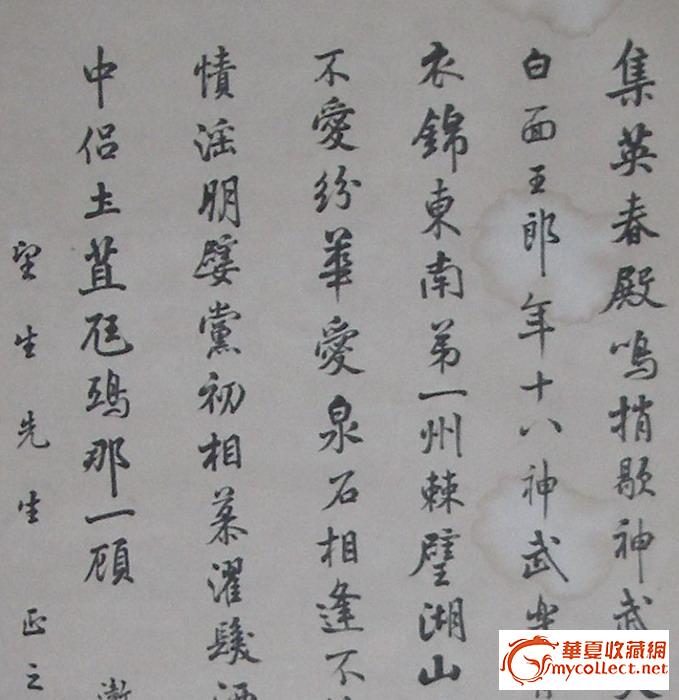 集英春殿鳴捎歇神武
白面玉郎年十八神武樂
衣錦東南第一州棘璧湖山
不愛紛華愛泉石相逢不
幘淫朋嬖黨初相慕濯髮洒
中侶土苴尫鴉那一顧
望生先生 正之
華夏收藏網
mycollect.net